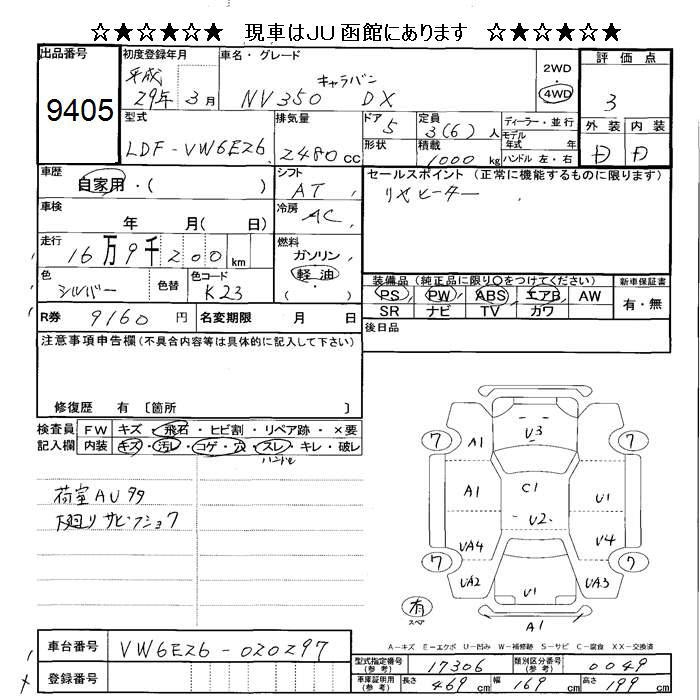 ☆★☆★☆★ 現車はJU函館にあります ☆★☆★☆★
出品番号
9405
初度登録年月
平成
29年 3月
車名・グレード
キャラバン
NV350 DX
2WD
・
4WD
評価点
3
型式
LDF-VW6E26
排気量
2480 CC
ドア 5
形状
定員 3(6) 人
積載 1000 kg
ディーラー・並行
モデル
年式 年
ハンドル 左・右
外装 内装
D D
車歴
自家用・( )
シフト
AT
セールスポイント (正常に機能するものに限ります)
リヤヒーター
車検
年 月( 日)
冷房
AC
走行
16万9千200 km
燃料
ガソリン
・
軽油
( )
色
シルバー
色替
色コード
K23
装備品 (純正品に限り○をつけてください)
PS PW ABS エアB AW
SR ナビ TV カワ
新車保証書
有・無
R券 9160 円
名変期限 月 日
後日品
注意事項申告欄 (不具合内容等は具体的に記入して下さい)
修復歴 有 〔箇所 〕
検査員
記入欄
FW キズ・飛石・ヒビ割・リペア跡・×要
内装 キズ・汚レ・コゲ・穴・スレ・キレ・破レ
ハンドル
荷室AUタタ
下廻りサビ・フショク
7 A1 U3 7
A1 C1 U1
U2
UA4 U4
7 UA2 U1 UA3 7
有
スペア
A1
A-キズ E-エクボ U-凹み W-補修跡 S-サビ C-腐食 XX-交換済
車台番号 VW6E26-020297
登録番号
型式指定番号
(参考)
17306
類別区分番号
(参考)
0049
車庫証明用
(参考)
長さ 469 cm 幅 169 cm 高さ 199 cm